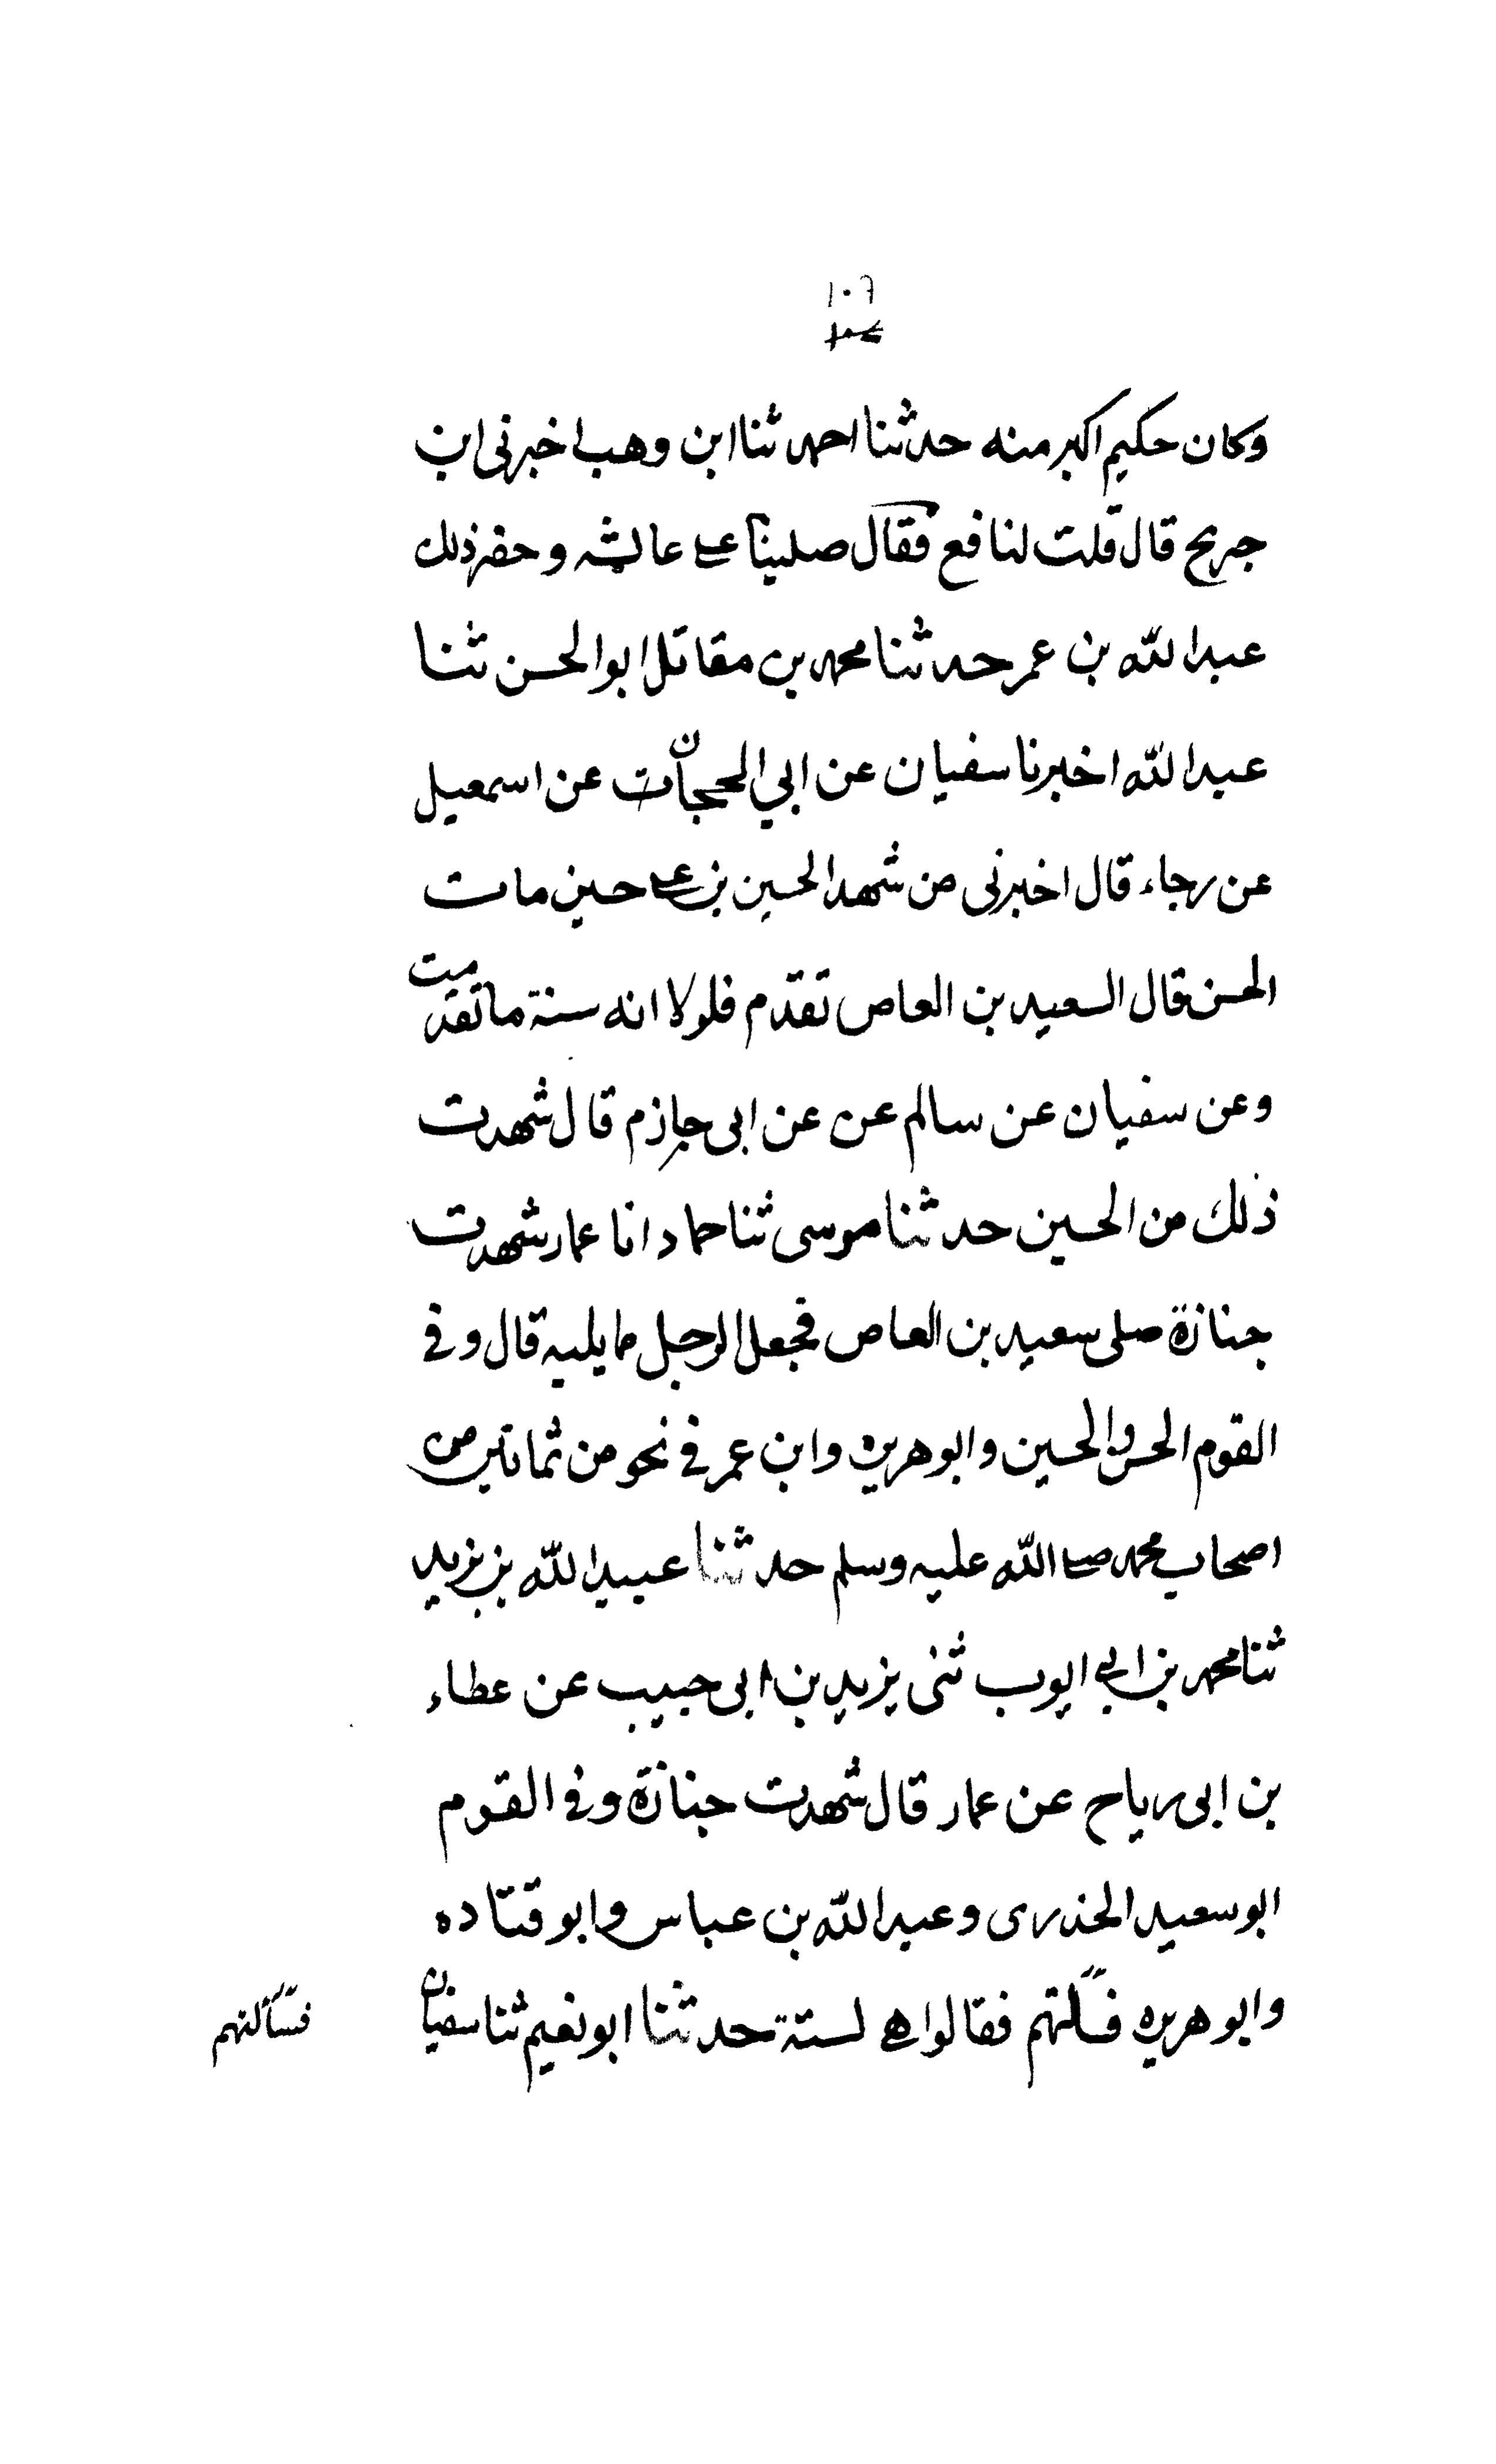 ١٠٦
وكان حكيم اكبر منه حدثنا احمد ثنا ابن وهب اخبرني ابن
جريج قال قلت لنافع فقال صلينا على عائشه وحضر ذلك
عبدالله بن عمر حدثنا محمد بن مقاتل ابوالحسن ثنا
عبدالله اخبرنا سفيان عن ابي الحجان عن اسمعيل
عن رجاء قال اخبرنى من شهد الحسين بن على حين مات
الحسن قال السعيد بن العاص تقدم فلولا انه سنة ما تقدمت
وعن سفيان عن سالم عن عن ابى حازم قال شهدت
ذلك من الحسين حدثنا موسى ثنا حماد انا عمار شهدت
جنازة صلى سعيد بن العاص فجعل الرجل مما يليه قال وفى
القوم الحسن والحسين وابو هريره وابن عمر فى نحو من ثمانين من
اصحاب محمد صلى الله عليه وسلم حدثنا عبيدالله بن يزيد
ثنا محمد بن ابي ايوب ثنى يزيد بن ابى حبيب عن عطاء
بن ابى رياح عن عمار قال شهدت جنازة وفى القوم
ابو سعيد الخدرى وعبدالله بن عباس وابو قتاده
وابو هريره فسألتهم فقالوا هى لسنة حدثنا ابو نعيم ثنا سفيان
فسألتهم